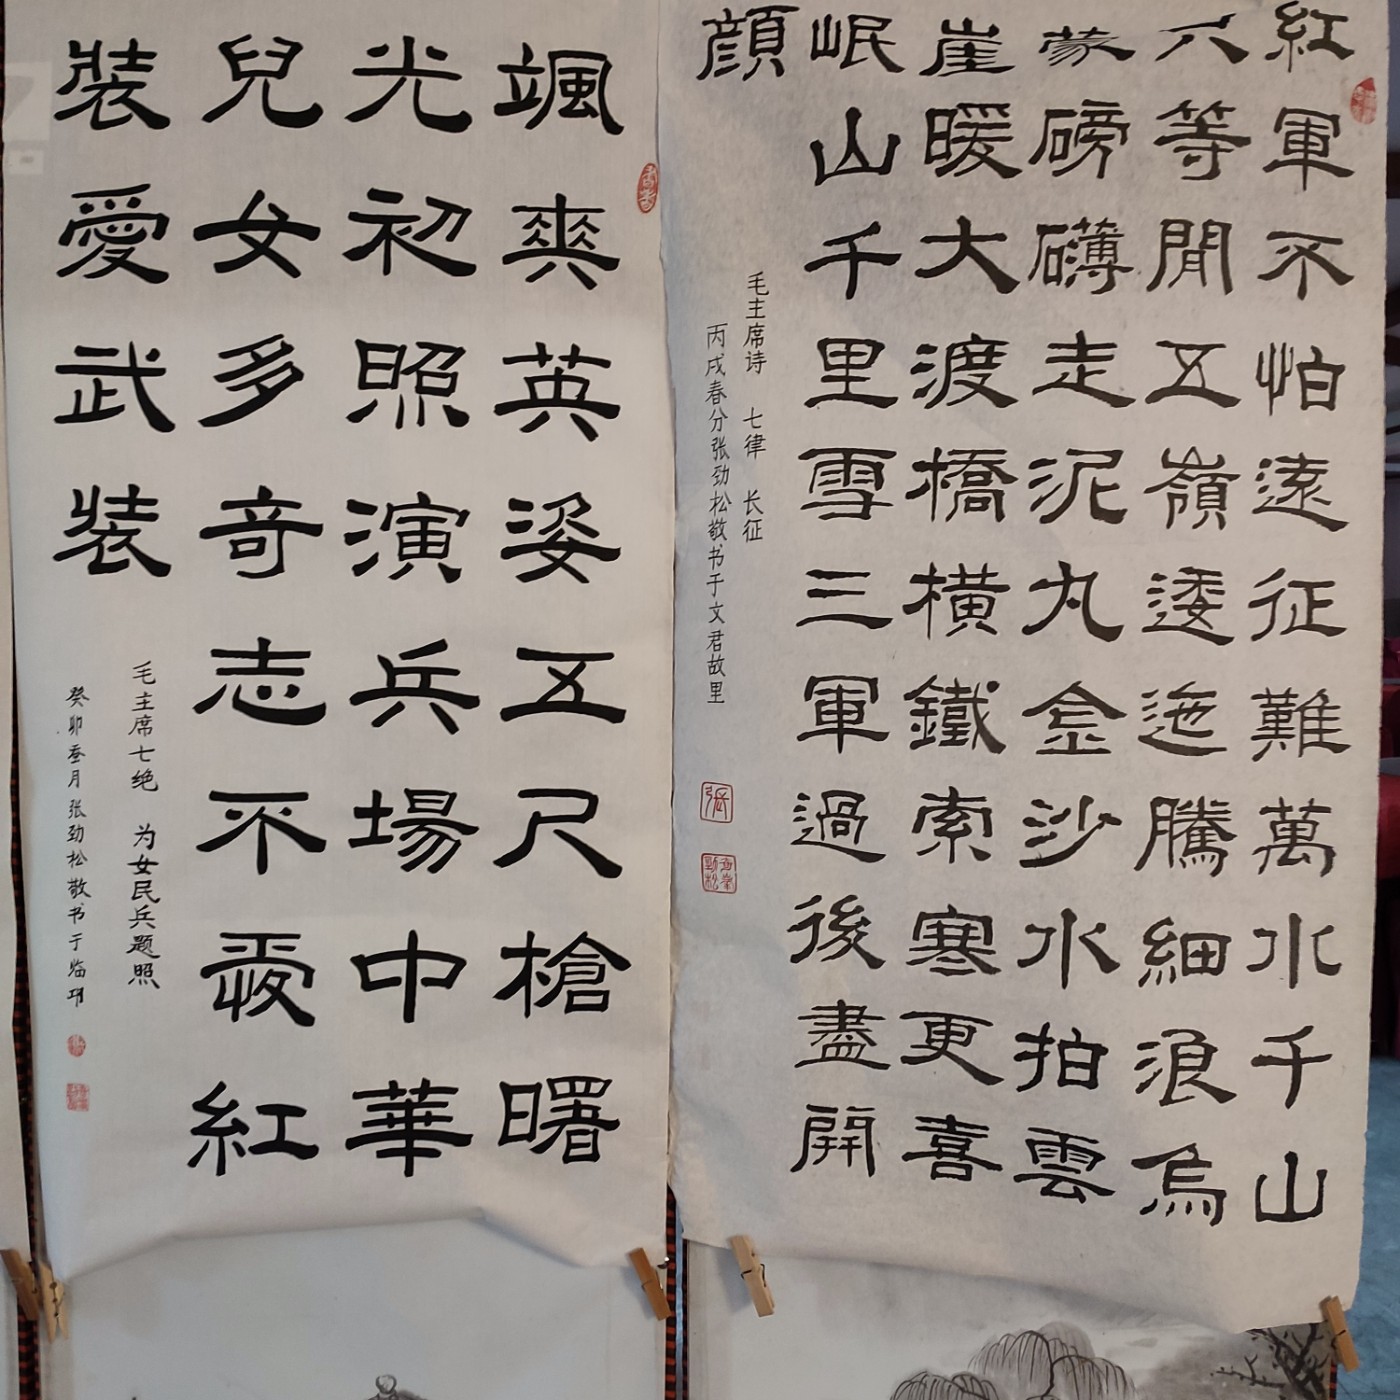 紅軍不怕遠征難萬水千山
只等閒五嶺逶迤騰細浪烏
蒙磅礴走泥丸金沙水拍雲
崖暖大渡橋橫鐵索寒更喜
岷山千里雪三軍過後盡開
顏
毛主席诗 七律 长征
丙戌春分张劲松敬书于文君故里
張
颯爽英姿五尺槍曙
光初照演兵場中華
兒女多奇志不愛紅
裝愛武裝
毛主席七绝 为女民兵题照
癸卯蚕月张劲松敬书于临邛